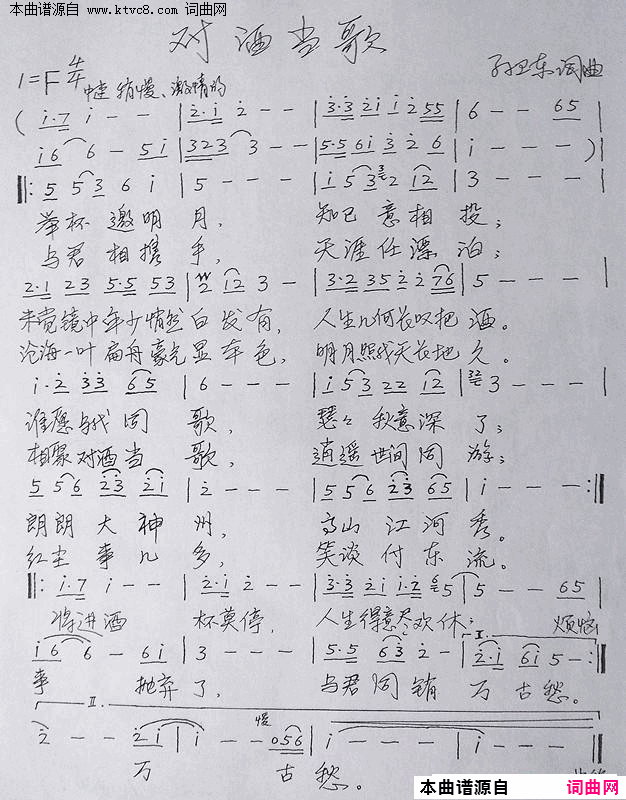 本曲谱源自 www.ktvc8.com 词曲网
对酒当歌
1=F 4/4 中速 稍慢、激情的
孙卫东词曲
( i·7 i - - | 2·1 2 - - | 3·3 2i i2 55 | 6 - - 65 |
i6 6 - 5i | 323 3 - - | 5·5 6i 3 2 6 | i - - - ) |
‖: 5 5 3 6 i | 5 - - - | i 5 3 2 i2 | 3 - - - |
举杯 邀明 月, 知己 意相 投;
与君 相携 手, 天涯任漂 泊;
2·1 23 5·5 53 | 2 i2 3 - | 3·2 35 2 2 76 | 5 - - - |
未觉镜中年少悄然白发有, 人生几何长叹把 酒。
沧海一叶扁舟豪气显本色, 明月照我天长地 久。
i·2 33 65 | 6 - - - | i 5 3 22 i2 | 3 - - - |
谁愿与我同 歌, 瑟々 秋意深 了;
相聚对酒当 歌, 逍遥 世间同 游;
5 5 6 23 2i | 2 - - - | 5 5 6 23 65 | i - - - :‖
朗朗 大 神 州, 高山 江 河 秀。
红尘 事 几 多, 笑谈 付 东 流。
‖: i·7 i - - | 2·i 2 - - | 3·3 2i i·2 5 | 5 - - 65 |
将进酒 杯莫停, 人生得意尽欢休; 烦恼
I.
i6 6 - 6i | 3 - - - | 5·5 63 2 - | 2·i 6i 5 - :‖
事 抛弃 了, 与君同销 万 古愁。
II.
慢
2 - - 2i | i - - 056 | i - - - | i - - - ‖
万 古 愁。
本曲谱源自 词曲网
www.ktvc8.com